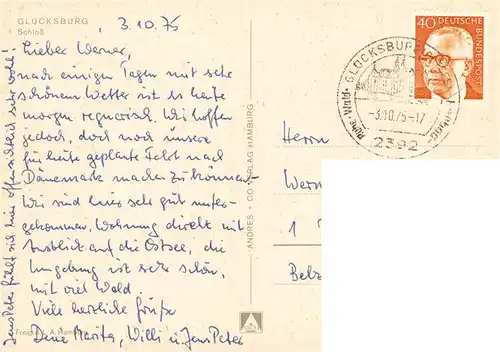 GLÜCKSBURG
Schloß
3.10.75
Lieber Werner,
nach einigen Tagen mit sehr
schönem Wetter ist es heute
morgen regnerisch. Wir hoffen
jedoch, doch noch unsere
für heute geplante Fahrt nach
Dänemark machen zu können.
Wir sind hier sehr gut unter-
gekommen, Wohnung direkt mit
Ausblick auf die Ostsee, die
Umgebung ist sehr schön,
mit viel Wald.
Viele herzliche Grüße
Deine Marita, Willi u. Jens Peter
Jens Peter fühlt sich hier offensichtlich sehr wohl!
ANDRES + CO VERLAG HAMBURG
40 DEUTSCHE BUNDESPOST
GLÜCKSBURG
Ruhe · Wald
-3.10.75-17
2392
Herrn
Wern
1
Belz